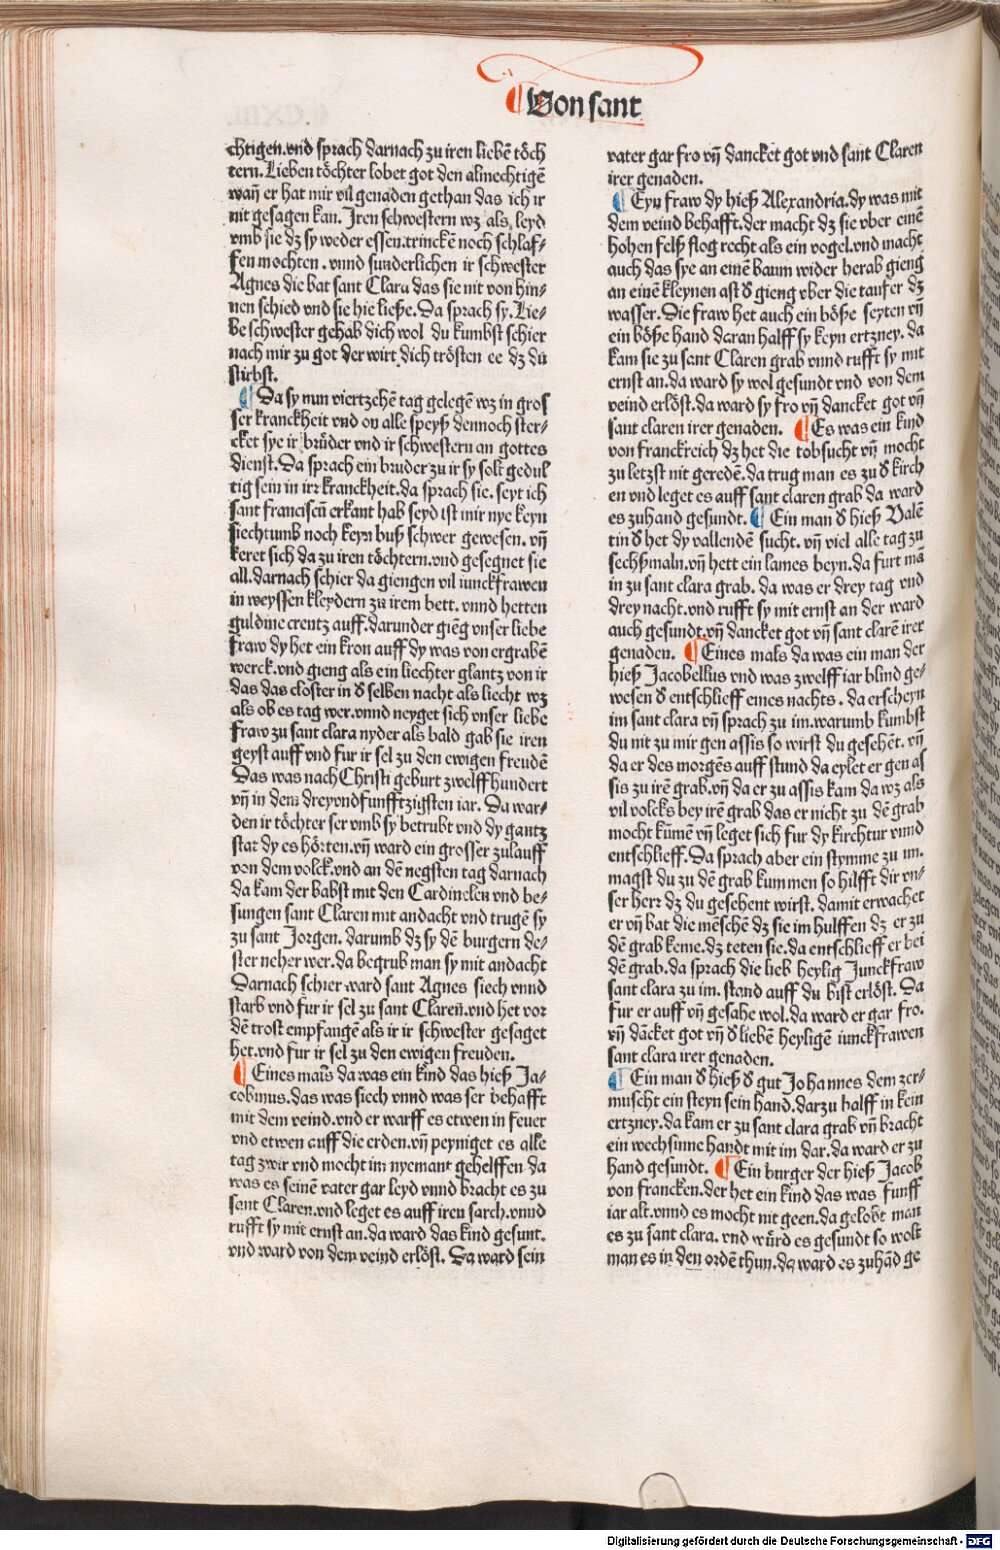 ¶Von sant
chtigen.vnd sprach darnach zu iren liebē töch
tern.Lieben töchter lobet got den almechtigē
wañ er hat mir vil genaden gethan das ich ir
nit gesagen kan. Iren schwestern wz als leyd
vmb sie dz sy weder essen.trinckē noch schlaf-
fen mochten. vnnd sunderlichen ir schwester
Agnes die bat sant Clara das sie nit von hin-
nen schied vnd sie hie ließe. Da sprach sy.Lie-
be schwester gehab dich wol du kumbst schier
nach mir zu got der wirt dich trösten ee dz du
stirbst.
¶ Da sy nun viertzehē tag gelegē wz in gros
ser kranckheit vnd on alle speyß dennoch ster-
cket sye ir brüder vnd ir schwestern an gottes
dienst.Da sprach ein bruder zu ir sy solt gedul
tig sein in irr kranckheit.da sprach sie. seyt ich
sant franciscū erkant hab seyd ist mir nye keyn
siechtumb noch keyn buß schwer gewesen. vñ
keret sich da zu iren töchtern.vnd gesegnet sie
all.darnach schier da giengen vil iunckfrawen
in weyssen kleydern zu irem bett. vnnd hetten
guldine crentz auff.darunder giēg vnser liebe
fraw dy het ein kron auff dy was von ergrabē
werck.vnd gieng als ein liechter glantz von ir
das das closter in d̕ selben nacht als liecht wz
als ob es tag wer.vnnd neyget sich vnser liebe
fraw zu sant clara nyder als bald gab sie iren
geyst auff vnd fur ir sel zu den ewigen freudē
Das was nach Christi geburt zwelffhundert
vñ in dem dreyvndfunfftzigsten iar. Da war-
den ir töchter ser vmb sy betrubt vnd dy gantz
stat dy es hörten.vñ ward ein grosser zulauff
von dem volck.vnd an dē negsten tag darnach
da kam der babst mit den Cardinelen vnd be-
sungen sant Claren mit andacht vnd trugē sy
zu sant Jorgen. darumb dz sy dē burgern de-
ster neher wer.da begrub man sy mit andacht
Darnach schier ward sant Agnes siech vnnd
starb vnd fur ir sel zu sant Clareñ.vnd het vor
dē trost empfangē als ir ir schwester gesaget
het.vnd fur ir sel zu den ewigen freuden.
¶ Eines mals da was ein kind das hieß Ja-
cobinus.das was siech vnnd was ser behafft
mit dem veind.vnd er warff es etwen in feuer
vnd etwen auff die erden.vñ peyniget es alle
tag zwir vnd mocht im nyemant gehelffen.da
was es seinē vater gar leyd vnnd bracht es zu
sant Claren.vnd leget es auff iren sarch.vnnd
rufft sy mit ernst an.da ward das kind gesunt.
vnd ward von dem veind erlöst. Da ward sein
vater gar fro vñ dancket got vnd sant Claren
irer genaden.
¶ Eyn fraw dy hieß Alexandria.dy was mit
dem veind behafft.der macht dz sie vber einē
hohen felß flog recht als ein vogel.vnd macht
auch das sye an einē baum wider herab gieng
an einē kleynen ast d̕ gieng vber die taufer dz
wasser. Die fraw het auch ein böße seyten vñ
ein böße hand daran halff sy keyn ertzney. da
kam sie zu sant Claren grab vnnd rufft sy mit
ernst an.da ward sy wol gesundt vnd von dem
veind erlöst.da ward sy fro vñ dancket got vñ
sant claren irer genaden. ¶ Es was ein kind
von franckreich dz het die tobsucht vñ mocht
zu letzst nit geredē.da trug man es zu d̕ kirch
en vnd leget es auff sant claren grab da ward
es zuhand gesundt. ¶ Ein man d̕ hieß Valē
tin d̕ het dy vallendē sucht. vñ viel alle tag zu
sechßmaln.vñ hett ein lames beyn.da furt mā
in zu sant clara grab. da was er drey tag vnd
drey nacht.vnd rufft sy mit ernst an der ward
auch gesundt.vñ dancket got vñ sant clarē irer
genaden. ¶ Eines mals da was ein man der
hieß Jacobellus vnd was zwelff iar blind ge-
wesen d̕ entschlieff eines nachts. da erscheyn
im sant clara vñ sprach zu im.warumb kumbst
du nit zu mir gen assis so wirst du gesehēt. vñ
da er des morgēs auff stund da eylet er gen as
sis zu irē grab.vñ da er zu assis kam da wz als
vil volcks bey irē grab das er nicht zu dē grab
mocht kūmē vñ leget sich fur dy kirchtur vnnd
entschlieff.Da sprach aber ein stymme zu im.
magst du zu dē grab kummen so hilfft dir vn-
ser herr dz du gesehent wirst. damit erwachet
er vñ bat die mēschē dz sie im hulffen dz er zu
dē grab keme.dz teten sie.da entschlieff er bei
dē grab.da sprach die lieb heylig Junckfraw
sant clara zu im. stand auff du bist erlöst. Da
fur er auff vñ gesahe wol.da ward er gar fro.
vñ dācket got vñ d̕ liebē heyligē iunckfrawen
sant clara irer genaden.
¶ Ein man d̕ hieß d̕ gut Johannes dem zer-
muscht ein steyn sein hand.darzu halff in kein
ertzney.da kam er zu sant clara grab vñ bracht
ein wechsinne handt mit im dar.da ward er zu
hand gesundt. ¶ Ein burger der hieß Jacob
von francken.der het ein kind das was funff
iar alt.vnnd es mocht nit geen.da gelobt man
es zu sant clara. vnd würd es gesundt so wolt
man es in den ordē thun.da ward es zuhād ge
Digitalisierung gefördert durch die Deutsche Forschungsgemeinschaft - DFG